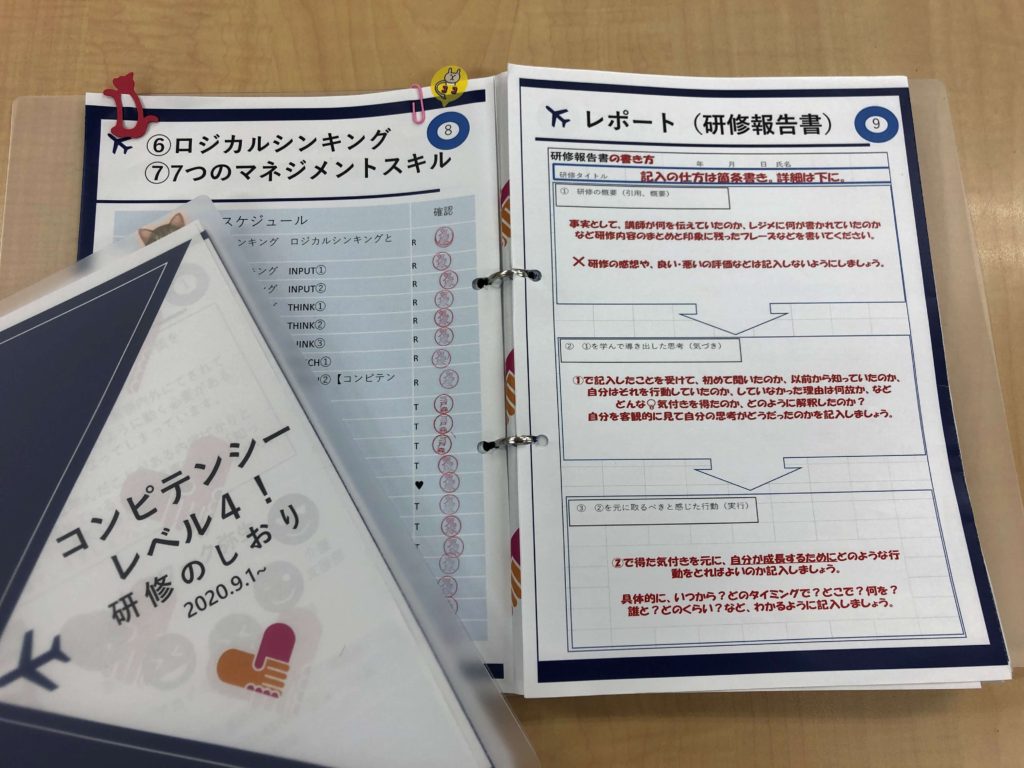 ⑥ロジカルシンキング
⑦7つのマネジメントスキル
8
スケジュール
確認
ンキング ロジカルシンキングと
R
ング INPUT①
R
INPUT②
R
THINK①
R
THINK②
R
INK③
R
CH①
R
②【コンピテン
R
T
T
T
♥
T
T
T
T
コンピテンシー
レベル4！
研修のしおり
2020.9.1~
レポート（研修報告書）
9
研修報告書の書き方
年 月 日 氏名
研修タイトル
記入の仕方は箇条書き。詳細は下に。
① 研修の概要（引用、概要）
事実として、講師が何を伝えていたのか、レジメに何が書かれていたのか
など研修内容のまとめと印象に残ったフレーズなどを書いてください。
× 研修の感想や、良い・悪いの評価などは記入しないようにしましょう。
② ①を学んで導き出した思考（気づき）
①で記入したことを受けて、初めて聞いたのか、以前から知っていたのか、
自分はそれを行動していたのか、していなかった理由は何故か、など
どんな気付きを得たのか、どのように解釈したのか？
自分を客観的に見て自分の思考がどうだったのかを記入しましょう。
③ ②を元に取るべきと感じた行動（実行）
②で得た気付きを元に、自分が成長するためにどのような行
動をとればよいのか記入しましょう。
具体的に、いつから？どのタイミングで？どこで？何を？
誰と？どのくらい？など、わかるように記入しましょう。